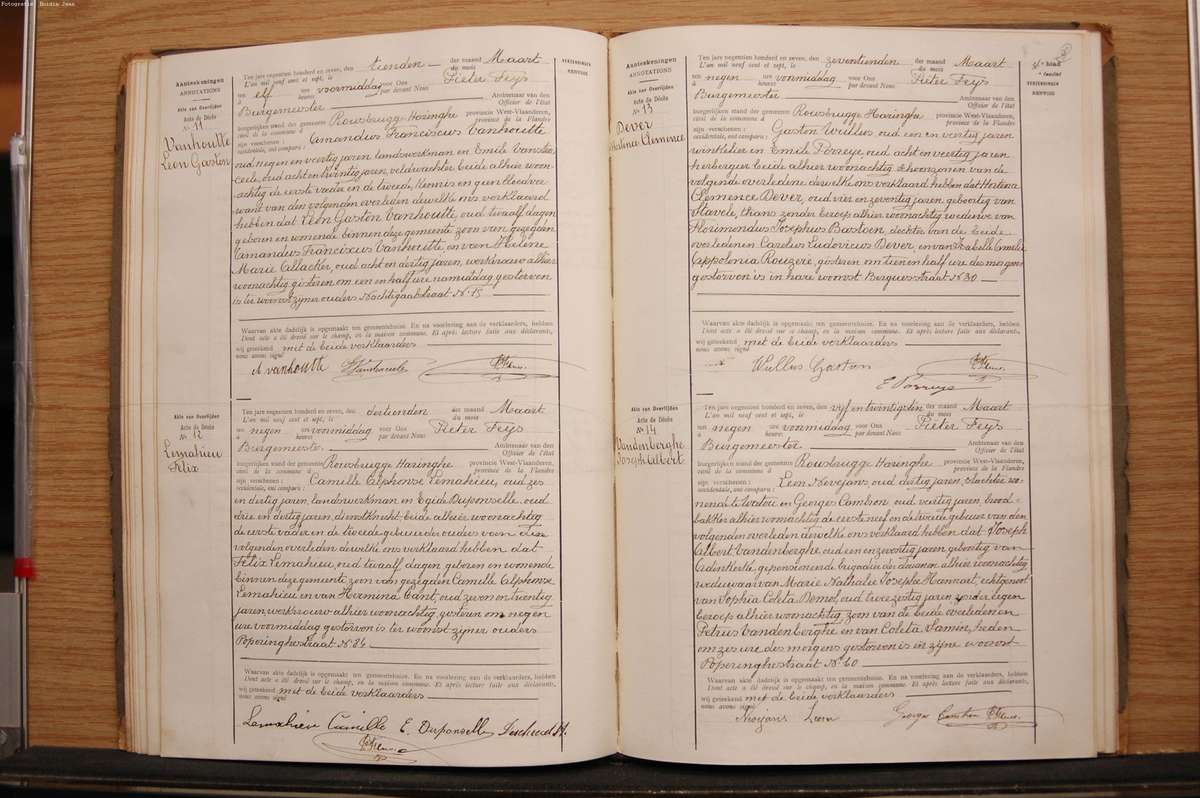 Fotografie: Boidin Jean
Aanteekeningen
ANNOTATIONS
Akte van Overlijden
Acte de Décès
№ 11
Vanhoutte
Leon Gaston
VERZENDINGEN
RENVOIS
Ten jare negentien honderd en zeven, den tienden der maand Maart
L'an mil neuf cent et sept, le du mois
ten elf ure voormiddag voor Ons Pieter Feys
à heures par devant Nous
Burgemeester Ambtenaar van den
Officier de l'état
burgerlijken stand der gemeente Rousbrugge Haringhe provincie West-Vlaanderen,
civil de la commune d province de la Flandre
zijn verschenen: Amandus Franciscus Vanhoutte
occidentale, ont comparu:
oud negen en veertig jaren, landswerkman en Emile Vanste-
ceele, oud acht en twintig jaren, veldwachter, beide alhier woon-
achtig de eerste vader en de tweede, kennis en geen bloedver
want van den volgenden overleden dewelke ons verklaard
hebben dat Leon Gaston Vanhoutte, oud twaalf dagen
geboren en wonende binnen deze gemeente zoon van gezegden
Amandus Franciscus Vanhoutte, en van Helene
Marie Allacker, oud acht en dertig jaren, werkvrouw alhier
woonachtig gisteren om een en half ure namiddag gestorven
is ter woonst zijner ouders Nachtegaalstraat N. 15
Waarvan akte dadelijk is opgemaakt ten gemeentehuize. En na voorlezing aan de verklaarders, hebben
Dont acte a été dressé sur le champ, en la maison commune. Et après lecture faite aux déclarants,
wij geteekend met de beide verklaarders
nous avons signé
A vanhoutte
Akte van Overlijden
Acte de Décès
№ 12
Lemahieu
Felix
Ten jare negentien honderd en zeven, den dertienden der maand Maart
L'an mil neuf cent et sept, le du mois
ten negen ure voormiddag voor Ons Pieter Feys
à heures par devant Nous
Burgemeester Ambtenaar van den
Officier de l'état
burgerlijken stand der gemeente Rousbrugge Haringhe provincie West-Vlaanderen,
civil de la commune d province de la Flandre
zijn verschenen: Camille Alphonse Lemahieu, oud zes
occidentale, ont comparu:
en dertig jaren, landswerkman en Egide Desponselle, oud
drie en dertig jaren, dienstknecht, beide alhier woonachtig
de eerste vader en de tweede gebuur der ouders van den
volgenden overleden dewelke ons verklaard hebben dat
Felix Lemahieu, oud twaalf dagen, geboren en wonende
binnen deze gemeente zoon van gezegden Camille Alphonse
Lemahieu en van Hermina Cant, oud zeven en twintig
jaren, werkvrouw alhier woonachtig, gisteren om negen
ure voormiddag gestorven is ter woonst zijner ouders
Poperinghestraat N. 84
Waarvan akte dadelijk is opgemaakt ten gemeentehuize. En na voorlezing aan de verklaarders, hebben
Dont acte a été dressé sur le champ, en la maison commune. Et après lecture faite aux déclarants,
wij geteekend met de beide verklaarders
nous avons signé
Lemahieu Camille E. Desponselle
Aanteekeningen
ANNOTATIONS
Akte van Overlijden
Acte de Décès
№ 13
Dever
Hortence Clemence
VERZENDINGEN
RENVOIS
Ten jare negentien honderd en zeven, den zeventienden der maand Maart
L'an mil neuf cent et sept, le du mois
ten negen ure voormiddag voor Ons Pieter Feys
à heures par devant Nous
Burgemeester Ambtenaar van den
Officier de l'état
burgerlijken stand der gemeente Rousbrugge Haringhe provincie West-Vlaanderen,
civil de la commune d province de la Flandre
zijn verschenen: Gaston Wullus oud een en veertig jaren
occidentale, ont comparu:
winkelier en Emile Perreye, oud acht en veertig jaren
herbergier beide alhier woonachtig schoonzonen van de
volgende overledene dewelke ons verklaard hebben dat Hortence
Clemence Dever, oud vier en zeventig jaren, geboortig van
Stavele, thans zonder beroep alhier woonachtig weduwe van
Florimondus Josephus Bastoen, dochter van de beide
overledenen Carolus Ludovicus Dever, en van Isabella Amelia
Appolonia Rouzere, gisteren om tien en half ure des morgens
gestorven is in hare woonst Berguesstraat N 30
Waarvan akte dadelijk is opgemaakt ten gemeentehuize. En na voorlezing aan de verklaarders, hebben
Dont acte a été dressé sur le champ, en la maison commune. Et après lecture faite aux déclarants,
wij geteekend met de beide verklaarders
nous avons signé
Wullus Gaston
E Perreye
Akte van Overlijden
Acte de Décès
№ 14
Vandenberghe
Joseph Albert
Ten jare negentien honderd en zeven, den vijf en twintigsten der maand Maart
L'an mil neuf cent et sept, le du mois
ten negen ure voormiddag voor Ons Pieter Feys
à heures par devant Nous
Burgemeester Ambtenaar van den
Officier de l'état
burgerlijken stand der gemeente Rousbrugge Haringhe provincie West-Vlaanderen,
civil de la commune d province de la Flandre
zijn verschenen: Leon Nevejans, oud dertig jaren, slachter wo-
occidentale, ont comparu:
nende te Watou en Georges Cambon oud veertig jaren, brood-
bakker alhier woonachtig, de eerste neef en de tweede gebuur van den
volgenden overleden dewelke ons verklaard hebben dat Joseph
Albert Vandenberghe, oud een en zeventig jaren, geboortig van
Oudenkerke, gepensionneerde brigadier der douanen, alhier woonachtig
weduwaar van Marie Nathalie Josepha Hennart, echtgenoot
van Sophia Coleta Demol, oud twee zestig jaren, zonder eigen
beroep alhier woonachtig, zoon van de beide overledenen
Petrus Vandenberghe en van Coleta Samin, heden
om zes ure des morgens gestorven is in zijne woonst
Poperinghestraat N. 60
Waarvan akte dadelijk is opgemaakt ten gemeentehuize. En na voorlezing aan de verklaarders, hebben
Dont acte a été dressé sur le champ, en la maison commune. Et après lecture faite aux déclarants,
wij geteekend met de beide verklaarders
nous avons signé
Nevejans Leon Georges Cambon